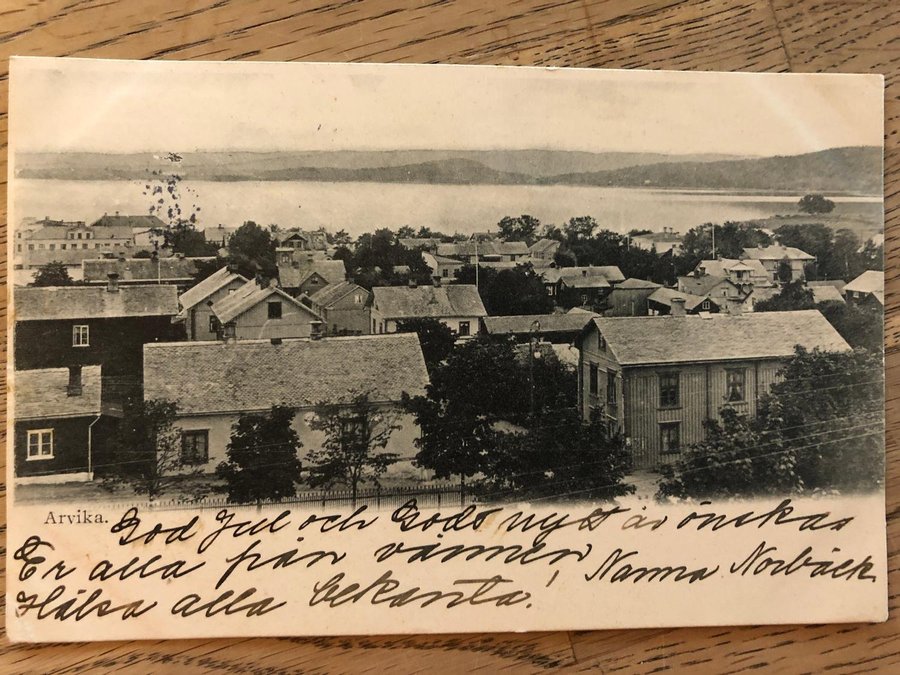 Arvika.
God Jul och Godt nytt år önskas
Er alla från vännen Nanna Norbäck.
Hälsa alla bekanta!